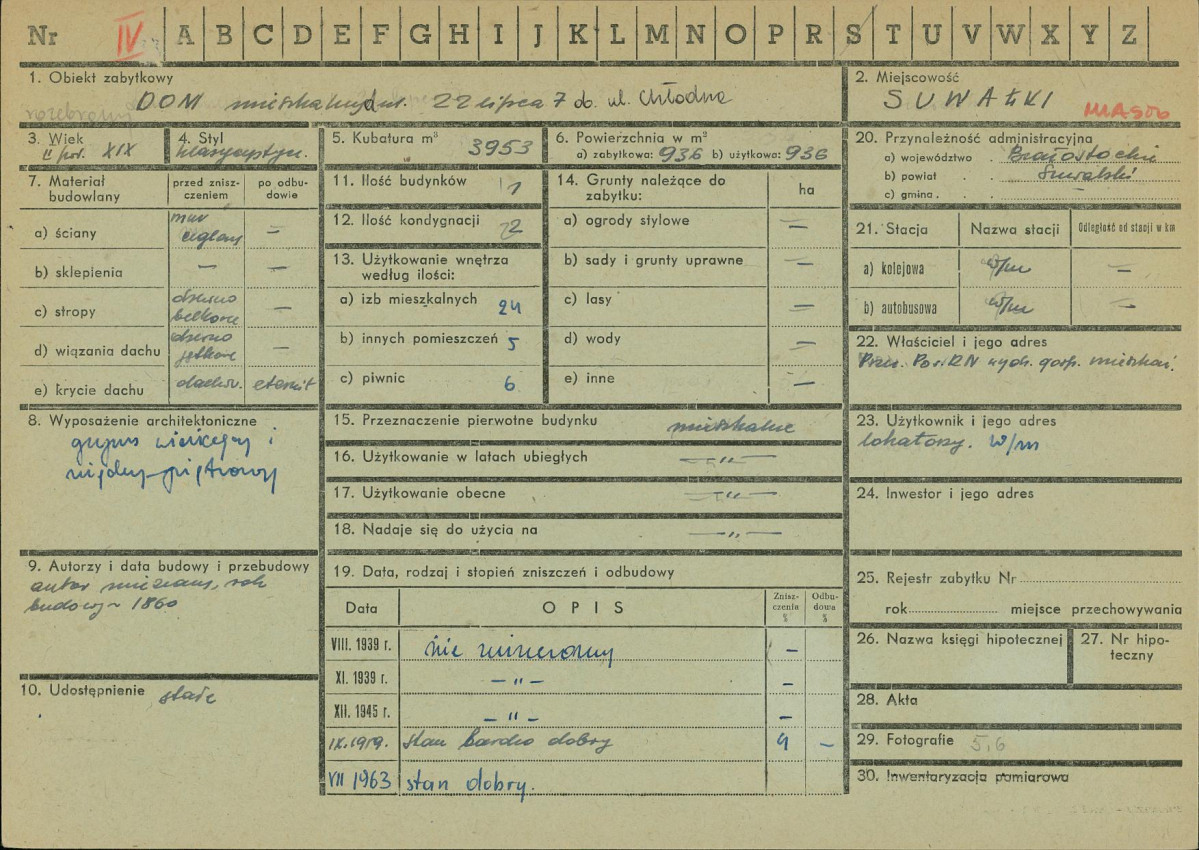 Nr IV A B C D E F G H I J K L M N O P R S T U V W X Y Z
1. Obiekt zabytkowy
DOM mieszkalny ul. 22 lipca 7 ob. ul. Chłodna
rozebrany
2. Miejscowość
SUWAŁKI MIASTO
3. Wiek
II poł. XIX
4. Styl
klasycystycz.
5. Kubatura m³ 3953
6. Powierzchnia w m²
a) zabytkowa: 936 b) użytkowa: 936
7. Materiał budowlany
przed zniszczeniem
po odbudowie
a) ściany mur ceglany —
b) sklepienia — —
c) stropy drewno belkowe —
d) wiązania dachu drewno jętkowe —
e) krycie dachu dachów. eternit
8. Wyposażenie architektoniczne
gzyms wieńczący i
międzypiętrowy
9. Autorzy i data budowy i przebudowy
autor nieznany, rok
budowy ~ 1860
10. Udostępnienie stałe
11. Ilość budynków 1
12. Ilość kondygnacji 2
13. Użytkowanie wnętrza
według ilości:
a) izb mieszkalnych 24
b) innych pomieszczeń 5
c) piwnic 6
14. Grunty należące do
zabytku: ha
a) ogrody stylowe —
b) sady i grunty uprawne —
c) lasy —
d) wody —
e) inne —
15. Przeznaczenie pierwotne budynku mieszkalne
16. Użytkowanie w latach ubiegłych —"—
17. Użytkowanie obecne —"—
18. Nadaje się do użycia na —"—
19. Data, rodzaj i stopień zniszczeń i odbudowy
Data OPIS Zniszczenia % Odbudowa %
VIII. 1939 r. nie zniszczony —
XI. 1939 r. —"— —
XII. 1945 r. —"— —
IX.1959. stan bardzo dobry 4 —
VII 1963 stan dobry.
20. Przynależność administracyjna
a) województwo . Białostockie
b) powiat . . Suwalski
c) gmina . .
21. Stacja Nazwa stacji Odległość od stacji w km
a) kolejowa w/m —
b) autobusowa w/m —
22. Właściciel i jego adres
Prez. Pow.RN wydz. gosp. mieszkań.
23. Użytkownik i jego adres
lokatorzy. w/m
24. Inwestor i jego adres
25. Rejestr zabytku Nr
rok miejsce przechowywania
26. Nazwa księgi hipotecznej
27. Nr hipoteczny
28. Akta
29. Fotografie 5,6
30. Inwentaryzacja pomiarowa